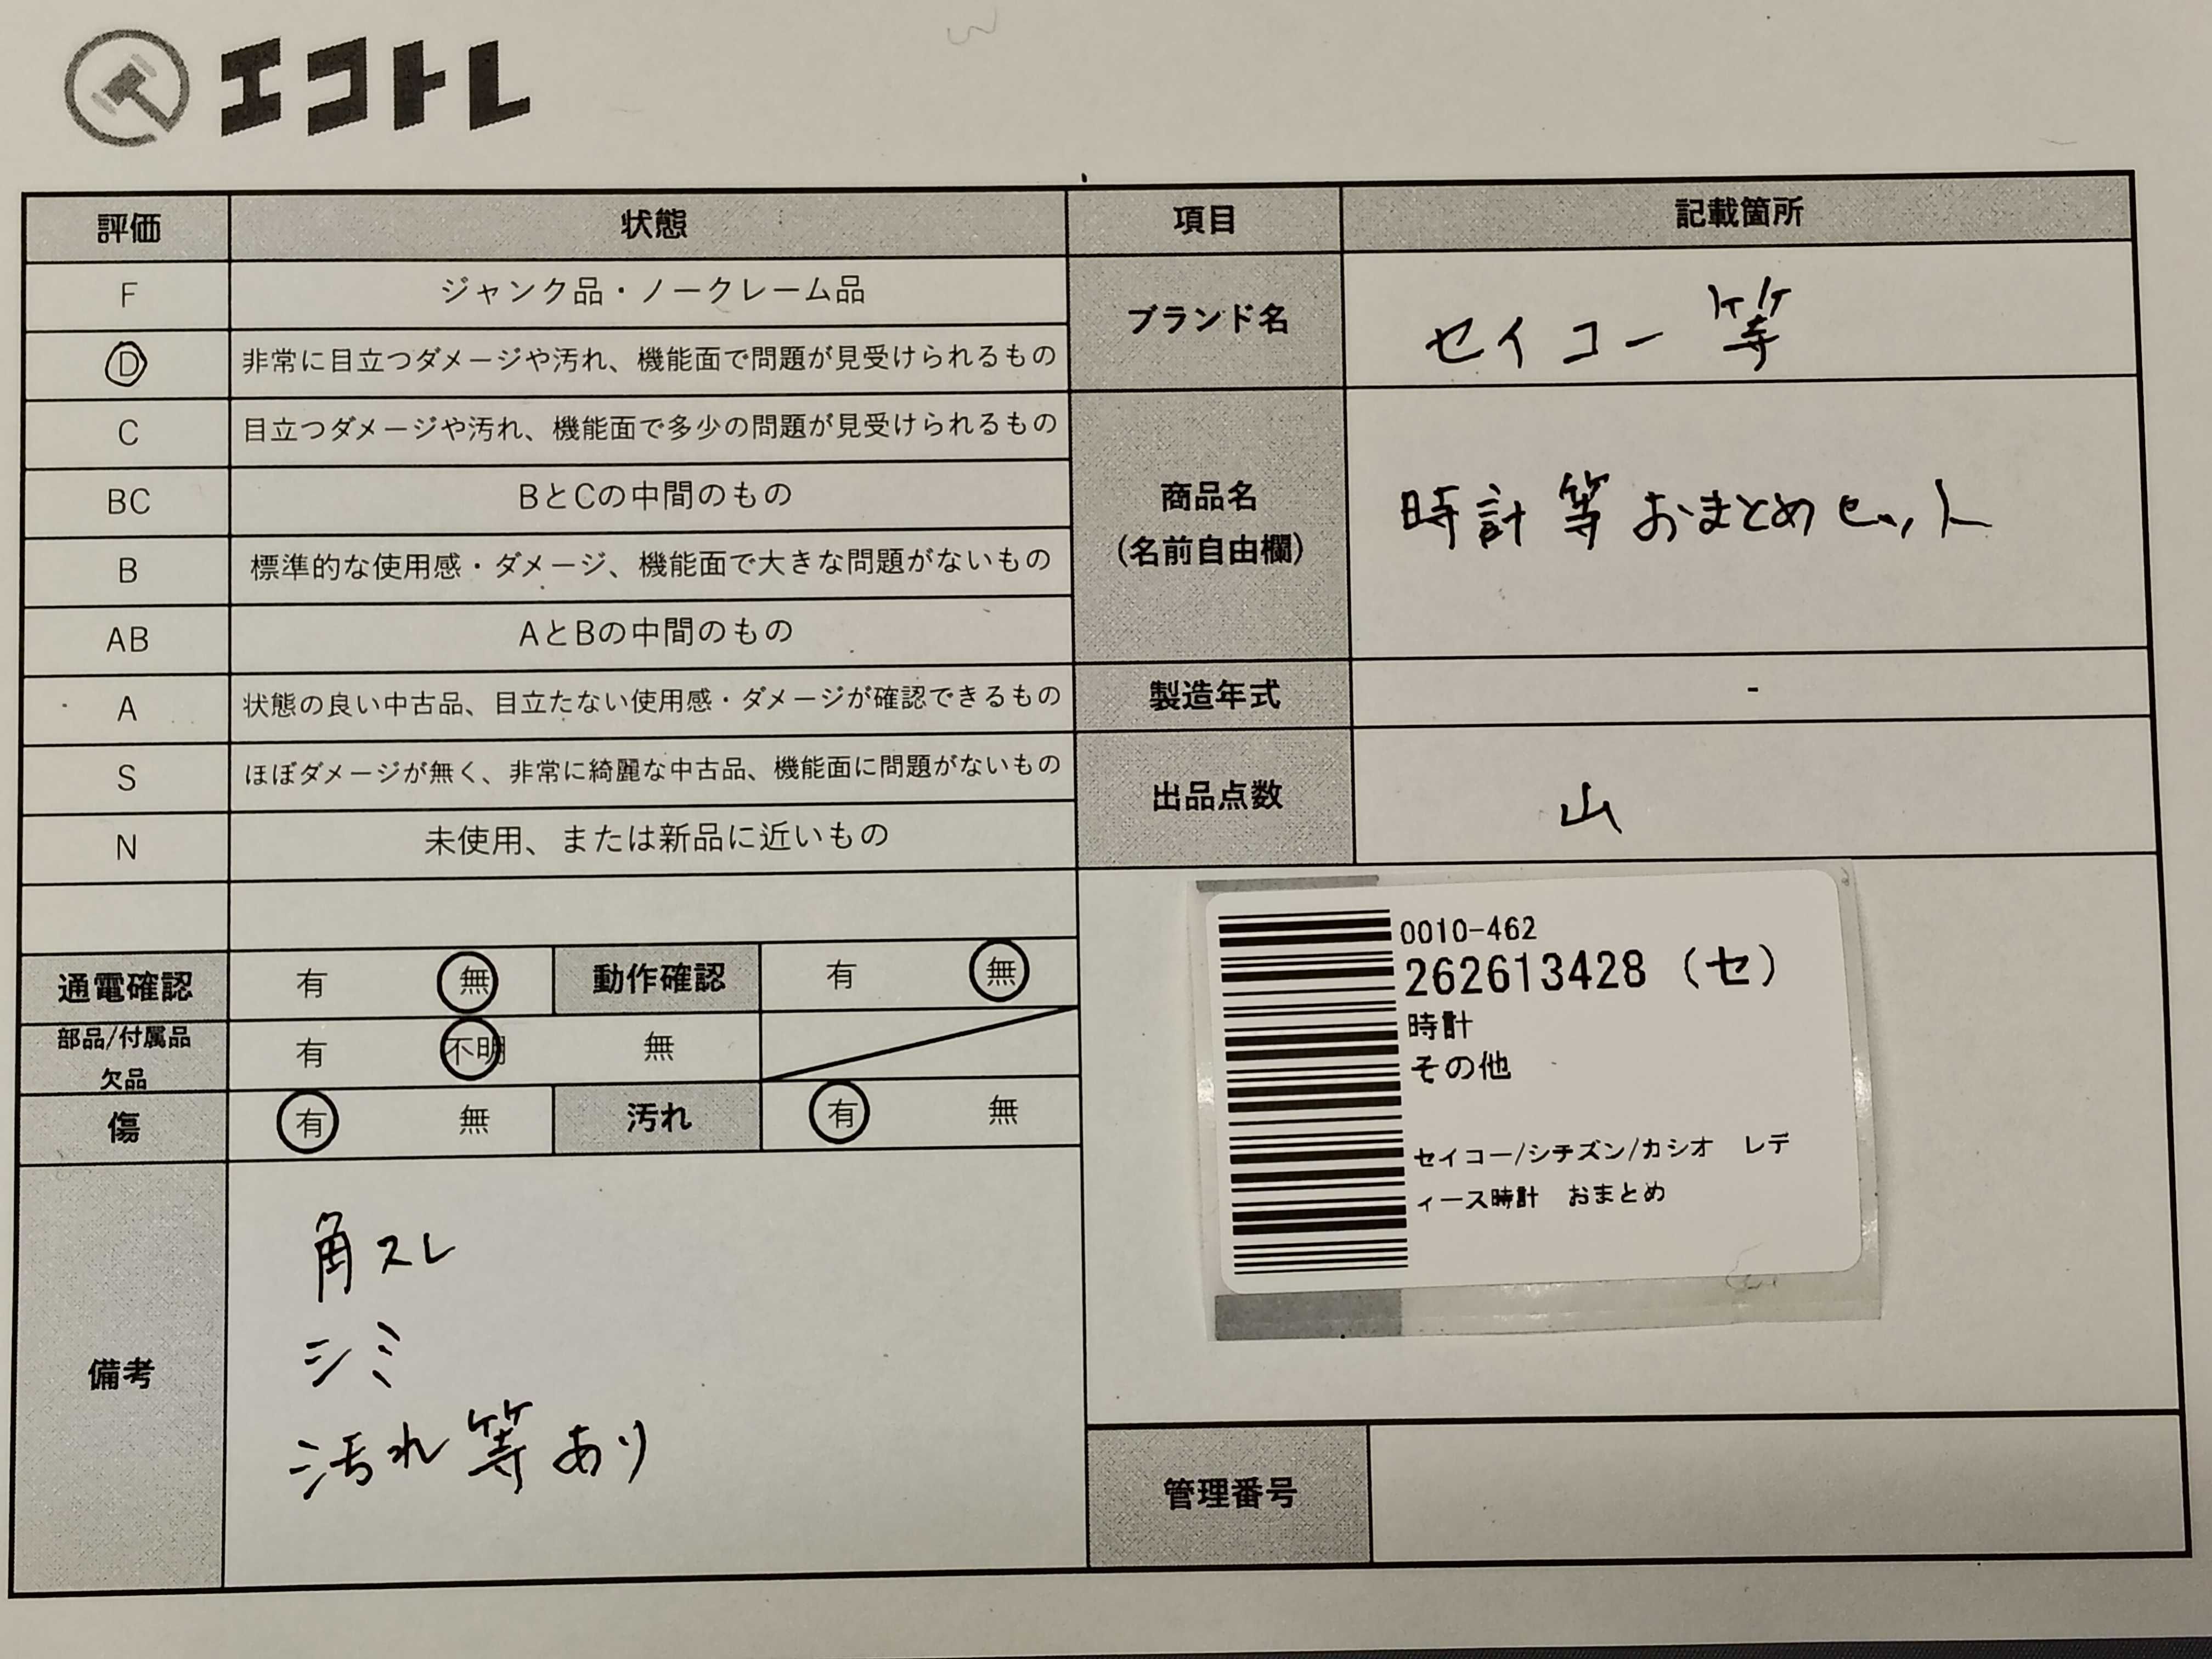 エコトレ
評価 状態 項目 記載箇所
F ジャンク品・ノークレーム品
D 非常に目立つダメージや汚れ、機能面で問題が見受けられるもの
ブランド名 セイコー等
C 目立つダメージや汚れ、機能面で多少の問題が見受けられるもの
BC BとCの中間のもの
商品名
(名前自由欄)
時計等おまとめセット
B 標準的な使用感・ダメージ、機能面で大きな問題がないもの
AB AとBの中間のもの
A 状態の良い中古品、目立たない使用感・ダメージが確認できるもの
製造年式 -
S ほぼダメージが無く、非常に綺麗な中古品、機能面に問題がないもの
出品点数 山
N 未使用、または新品に近いもの
通電確認 有 無 動作確認 有 無
部品/付属品
欠品
有 不明 無
傷 有 無 汚れ 有 無
備考
角スレ
シミ
汚れ等あり
0010-462
262613428 (セ)
時計
その他
セイコー/シチズン/カシオ レデ
ィース時計 おまとめ
管理番号